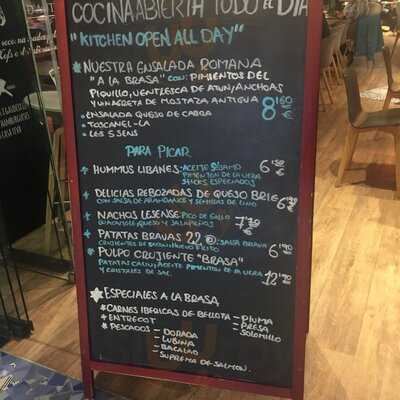 COCINA ABIERTA TODO EL DÍA
"KITCHEN OPEN ALL DAY"
NUESTRA ENSALADA ROMANA
"A LA BRASA" CON: PIMIENTOS DEL
PIQUILLO, VENTRESCA DE ATUN, ANCHOAS
Y VINAGRETA DE MOSTAZA ANTIGUA 8,60 €
ENSALADA QUESO DE CABRA
TOSCANEL-LA
LES 5 SENS
PARA PICAR
+ HUMMUS LIBANES: ACEITE SÉSAMO 6
PIMENTON DE LA VERA
STICKS ESPECIADOS
+ DELICIAS REBOZADAS DE QUESO BRIE 6
CON SALSA DE ARANDANOS Y SEMILLAS DE LINO
+ NACHOS LESENSE: PICO DE GALLO
GUACAMOLE, QUESO Y JALAPEÑOS 7
+ PATATAS BRAVAS 22º: SALSA BRAVA 6
CRUJIENTES DE BACON, HUEVO FRITO
* PULPO CRUJIENTE "BRASA" 12
PATATAS CALIU, ACEITE PIMENTON DE LA VERA
Y CRISTALES DE SAL.
ESPECIALES A LA BRASA
* CARNES IBERICAS DE BELLOTA - PLUMA
* ENTRECOT - PRESA
* PESCADOS - DORADA - SOLOMILLO
- LUBINA
- BACALAO
- SUPREMA DE SALMON.